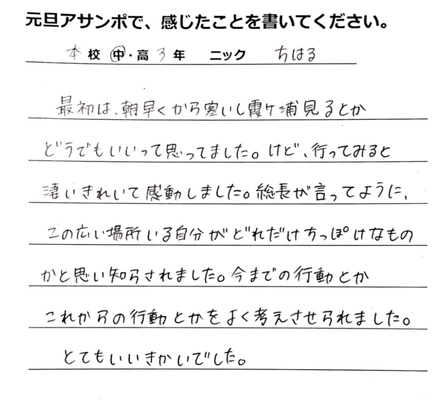 元旦アサンポで、感じたことを書いてください。
本校 中・高 3年 ニック ちはる
最初は、朝早くから寒いし霞ヶ浦見るとか
どうでもいいって思ってました。けど、行ってみると
凄いきれいで感動しました。総長が言ってように、
この広い場所いる自分がどれだけちっぽけなもの
かと思い知らされました。今までの行動とか
これからの行動とかをよく考えさせられました。
とてもいいきかいでした。